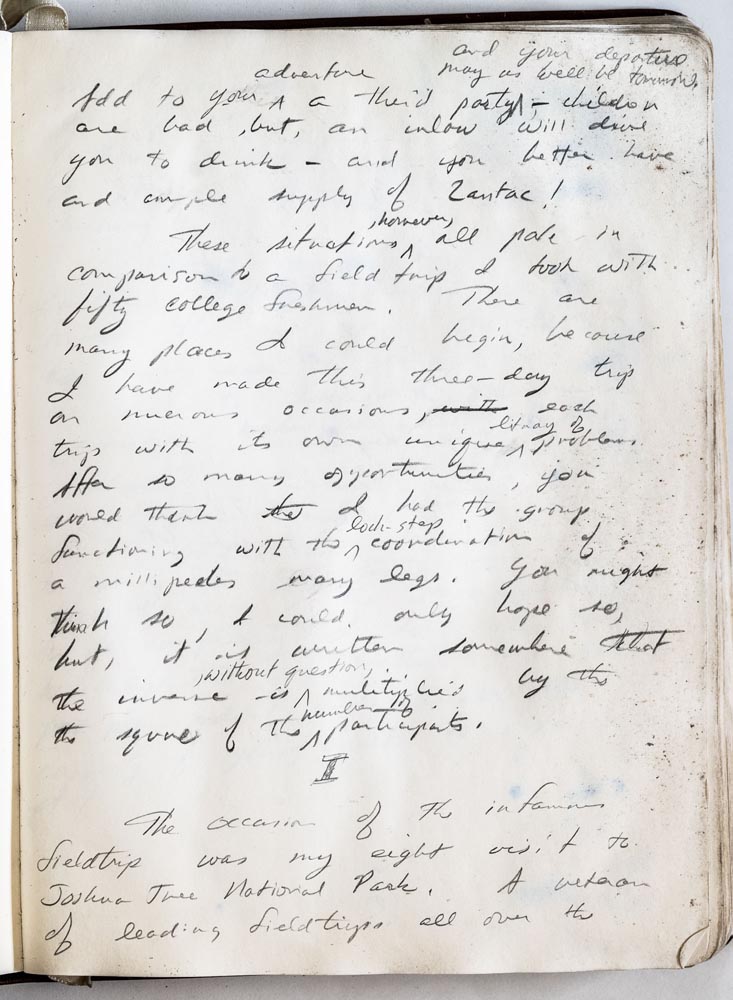 and your departure
adventure may as well be tomorrow.
Add to your ^ a third party ^ – children
are bad, but, an inlaw will drive
you to drink – and you better have
and ample supply of Zantac!
, however,
These situations ^ all pale in
comparison to a field trip I took with
fifty college freshmen. There are
many places I could begin, because
I have made this three-day trip
on numerous occasions, with each
litany of
trip with its own unique ^ problems.
After so many opportunities, you
would think the I had the group
lock-step
functioning with the ^ coordination of
a millipedes many legs. You might
think so, I could only hope so,
but, it is written somewhere that
, without question,
the inverse is ^ multiplied by the
number of
the square of the ^ participants.
II
The occasion of the infamous
fieldtrip was my eight visit to
Joshua Tree National Park. A veteran
of leading fieldtrips all over the